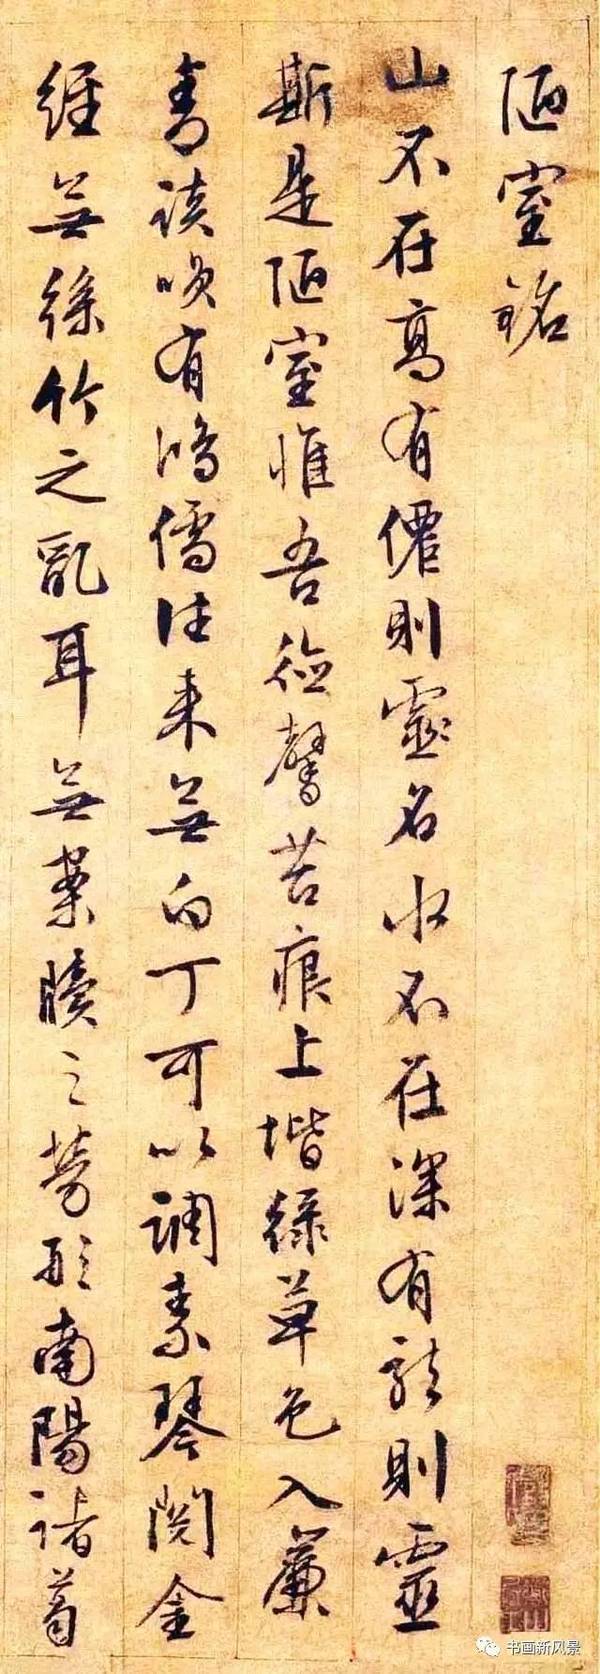 陋室銘
山不在高有僊則靈名水不在深有龍則靈
斯是陋室惟吾德馨苔痕上堦綠草色入簾
青談咲有鴻儒往来無白丁可以調素琴閱金
經無絲竹之亂耳無案牘之勞形南陽諸葛
书画新风景